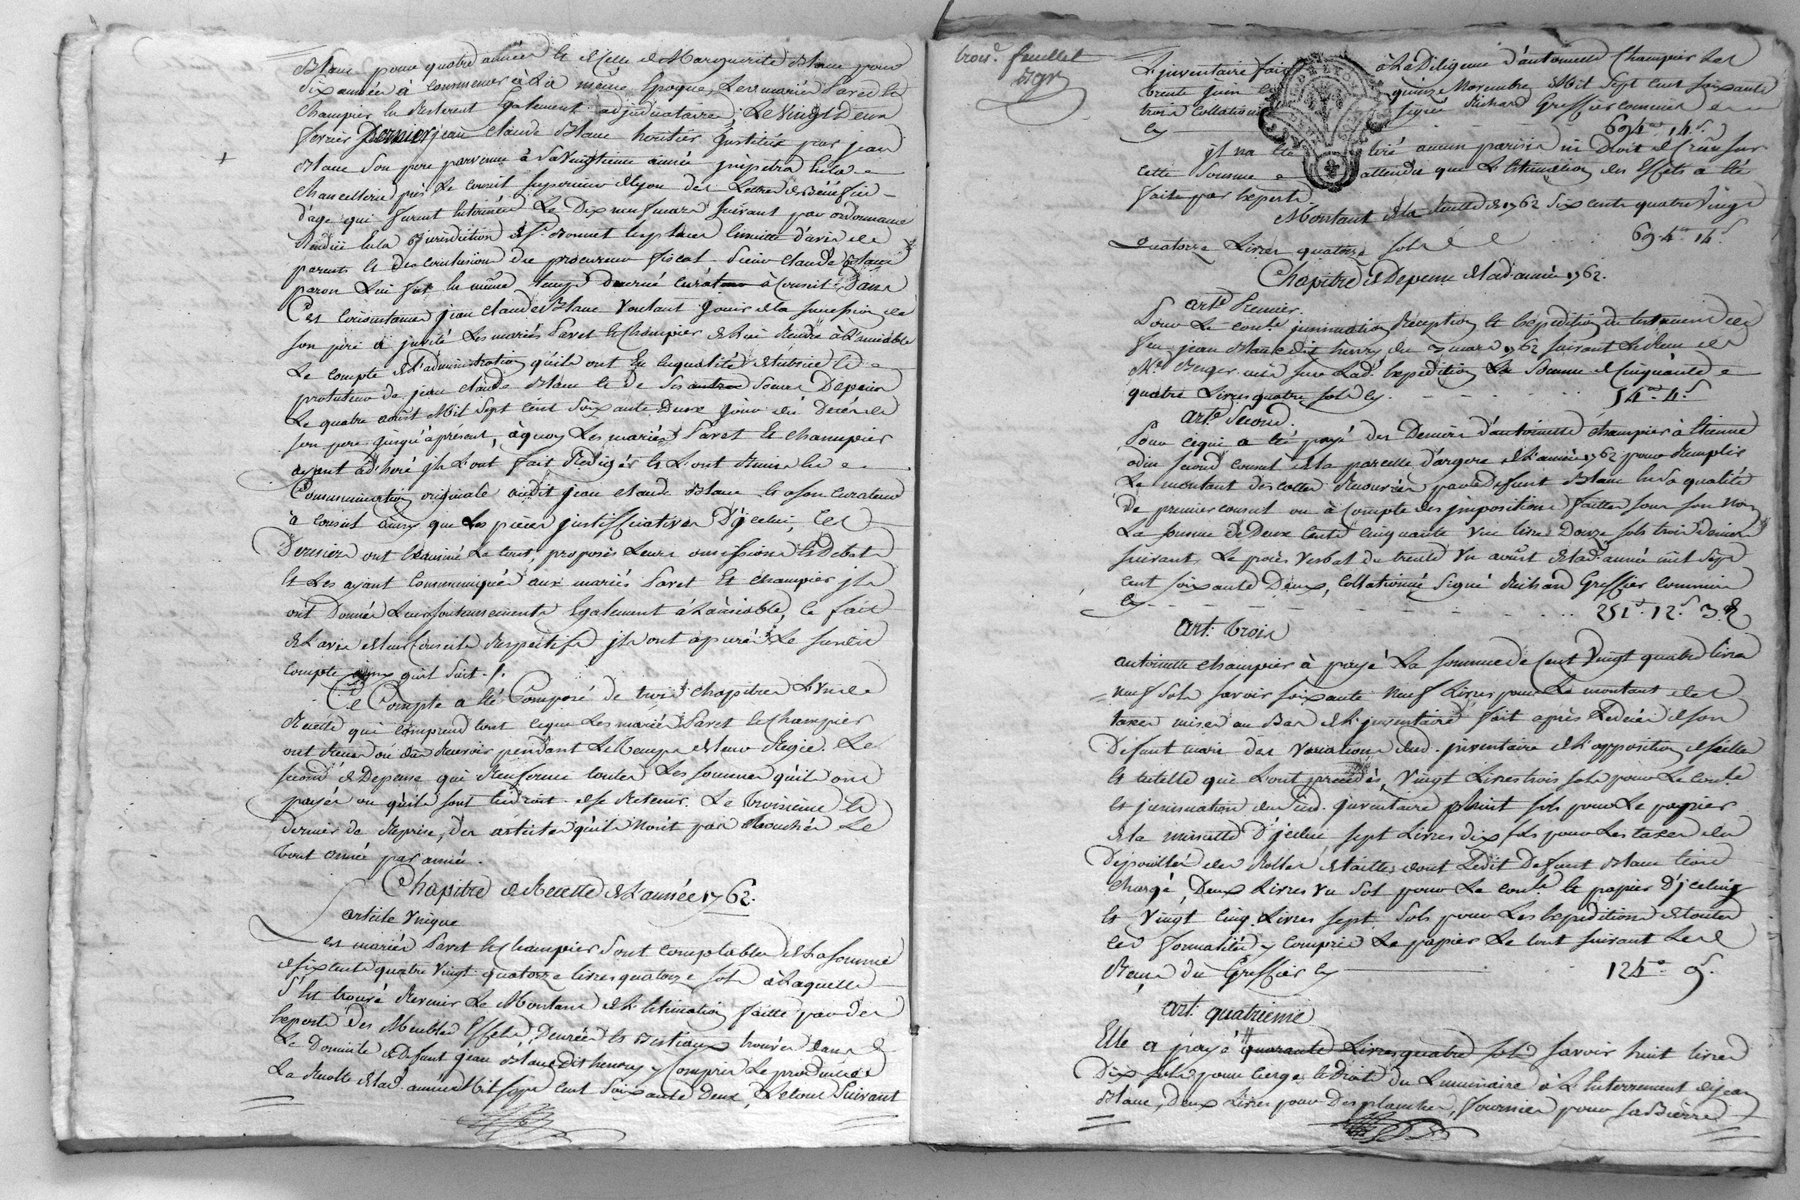 Blanc pour quatre années et celle de Marguerite Blanc pour
six années à commencer à la même époque, les mariés Favet et
Champier en resterent également adjudicataires. Le vingt deux
fevrier dernier jean claude Blanc heritier institué par jean
Blanc son pere parvenu à sa vingtieme année impetra en la
chancellerie près le conseil superieur de lyon des Lettres de Bénéfice
d'age qui furent enterinées le dix neuf mars suivant par ordonnance
Rendüe en la jurisdiction de St. Bonnet les places ensuite d'avis de
parents et des conclusions du procureur fiscal. Sieur claude Blanc
paron lui fut en même temps decerné curateur à conseil; Dans
Ces circonstances jean claude Blanc voulant jouir de la succession de
son pere a invité les mariés Favet et Champier de lui Rendre à l'amiable
Le compte de l'administration qu'ils ont eu en qualité de tutrice et
protuteur de jean claude Blanc et de ses autres soeurs Depuis
Le quatre août Mil sept cent soixante deux jour du décès de
son pere jusqu'à présent, à quoy les mariés Favet et champier
ayant adheré ils l'ont fait Rediger et l'ont Remis en
Communication originale audit jean claude Blanc et a son curateur
à conseil ainsy que les pièces justifficatives D'icelui, Ces
Derniers ont Examiné le tout, proposés leurs omissions et Debats
et Les ayant communiqués aux mariés Favet et champier ils
ont Donnés Leurs soutenements également à l'amiable, ce fait
de l'avis de leurs conseils respectifs ils ont apuré Le susdit
compte ainsy qu'il suit.
Ce Compte a été Composé de trois chapitres l'un de
Recette qui comprend tout ceque les mariés Favet et champier
ont Reçu ou dû Recevoir pendant le temps de leur Regie. Le
second de Depense qui Renferme toutes les sommes qu'ils ont
payés ou qu'ils sont en droit de se Retenir. Le troisieme et
dernier de Reprise, des articles qu'ils n'ont pas Recouvrés Le
tout année par année.
Chapitre de Recette de L'année 1762.
article Unique
Les mariés Favet et Champier sont comptables de la somme
de six cents quatre vingt quatorze livres quatorze sols à laquelle
s'est trouvé Revenir Le Montant de l'Estimation faitte par des
Experts des Meubles Effets, Denrées et Bestiaux trouvés dans
Le Domicile de Defunt jean Blanc dit henry y Compris Le produit de
La Recolte de lad. année Mil sept cent soixante deux, Le tout suivant
trois.e feuillet
L'inventaire fait à la Diligence d'antoinette Champier les
trente juin et quinze Novembre Mil sept cent soixante
trois collationné signé Richard Greffier commis
cy 694.# 14.s
il n'a été tiré aucun parisis ni Droit de Crüe sur
cette somme attendu que L'Estimation des effets a été
faite par Experts
Montant de la Recette de 1762 six cents quatre vingt
quatorze Livres quatorze sols 694.# 14.s
Chapitre de Depense de lad. année 1762.
art.e Premier.
Pour Le conle. insinuation Reception et Expedition du testament de
feu jean Blanc dit henry du 7 mars 1762 suivant Le Reçu de
Me. Berger mis sur Lad. Expedition La somme de Cinquante
quatre Livres quatre sols cy 54.# 4.s
art.e Second.
Pour cequi a été payé des Deniers d'antoinette champier à Etienne
odin second consul de la parcelle d'argere de l'année 1762 pour Remplir
Le montant des cottes Recouvrées par le defunt Blanc en sa qualité
de premier consul ou à Compte des impositions faittes sous son nom
La somme de Deux Cents cinquante une livre Douze sols trois deniers
suivant Le proces Verbal du trente un août de lad. année mil sept
cent soixante Deux, Collationné signé Richard Greffier Commis
cy 251.# 12.s 3.d
art. trois
antoinette champier à payé La somme de Cent Vingt quatre livres
neuf sols savoir soixante neuf Livres pour Le montant des
taxes mises au Bas de l'inventaire fait après Le decès de son
Defunt mari des vacations dud. inventaire de l'apposition de scellés
et tutelle qui L'ont precedés, Vingt Livres trois sols pour Le conle.
et insinuation dud. inventaire sols pour Le papier
de la minutte D'icelui sept Livres dix sols pour Les taxes du
Dépouillé des Rolles de tailles dont Ledit Defunt Blanc etoit
chargé, Deux Livres un sol pour Le conle. et papier D'icelui
et vingt cinq Livres sept sols pour Les Expeditions de toutes
ces formalités y compris Le papier Le tout suivant Le
Reçu du Greffier cy 124.# 9.s
art. quatrieme
Elle a payé quarante Livres quatre sols savoir huit livres
Dix sols pour cierges et Droits du Luminaire à L'Enterrement de jean
Blanc, Deux Livres pour Des planches, fournies pour sa Bierre